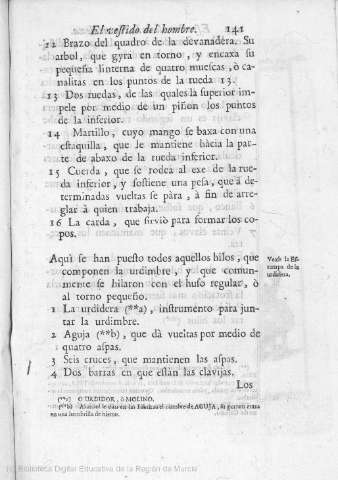 El vestido del hombre. 141
12 Brazo del quadro de la devanadera. Su
arbol, que gyra en torno, y encaxa su
pequeña linterna de quatro muescas, ò ca-
nalitas en los puntos de la rueda 13.
13 Dos ruedas, de las quales la superior im-
pele por medio de un piñon los puntos
de la inferior.
14 Martillo, cuyo mango se baxa con una
estaquilla, que le mantiene hàcia la par-
te de abaxo de la rueda inferior.
15 Cuerda, que se rodea al exe de la rue-
da inferior, y sostiene una pesa, que à de-
terminadas vueltas se pàra, à fin de arre-
glar à quien trabaja.
16 La carda, que sirviò para formar los co-
pos.
Aqui se han puesto todos aquellos hilos, que
componen la urdimbre, y que comun-
mente se hilaron con el huso regular, ò
al torno pequeño.
Vease la Es-
tampa de la
urdidera.
1 La urdidera (**a), instrumento para jun-
tar la urdimbre.
2 Aguja (**b), que dà vueltas por medio de
quatro aspas.
3 Seis cruces, que mantienen las aspas.
4 Dos barras en que estàn las clavijas.
Los
(**a) O URDIDOR, ò MOLINO.
(**b) en las Fabricas el nombre de AGUJA,
en una de hierro.
(c) Biblioteca Digital Educativa de la Región de Murcia